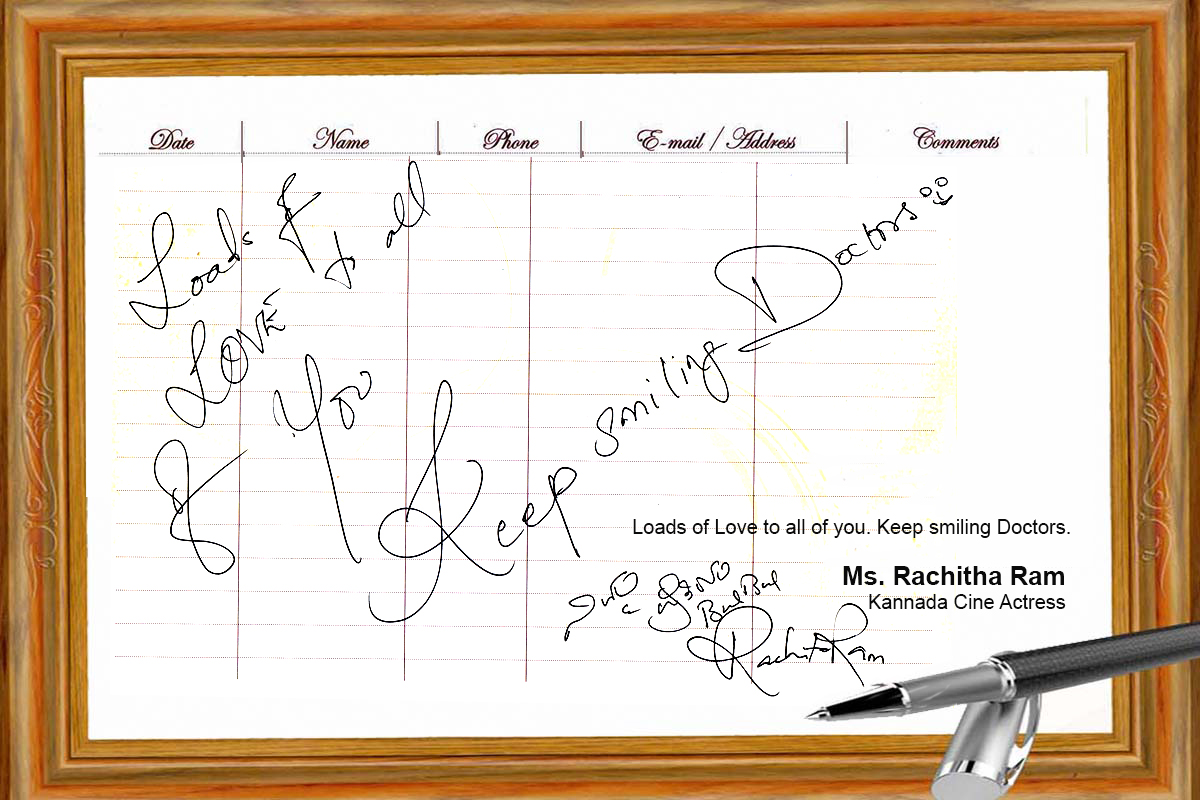 Date Name Phone E-mail / Address Comments
Loads of
LOVE to all
of You
Keep smiling Doctors
Loads of Love to all of you. Keep smiling Doctors.
Ms. Rachitha Ram
Kannada Cine Actress
Bul Bul
Rachita Ram